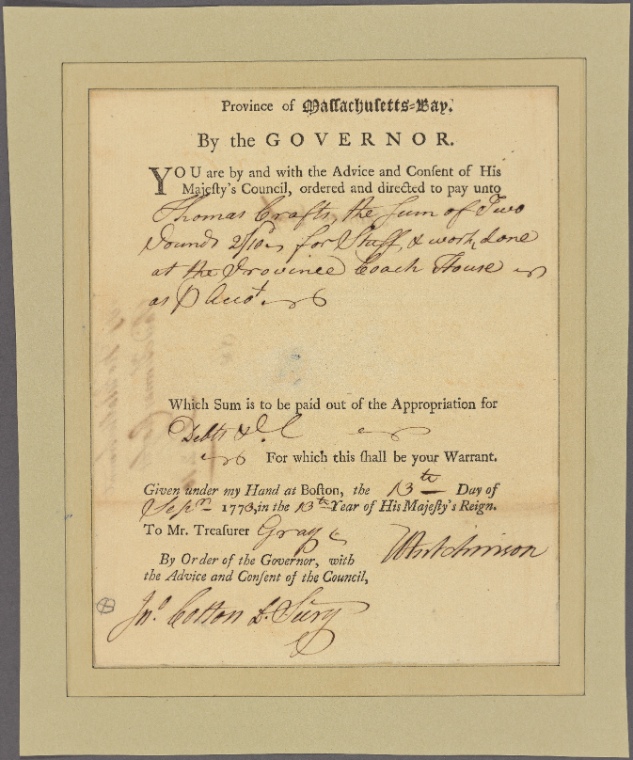 Province of Massachusetts-Bay.
By the GOVERNOR.
YOU are by and with the Advice and Consent of His
Majesty's Council, ordered and directed to pay unto
Thomas Crafts, the Sum of Two
Pounds 2/10 for Stuff, & work done
at the Province Coach House
as P Accot
Which Sum is to be paid out of the Appropriation for
Debts &c
For which this shall be your Warrant.
Given under my Hand at Boston, the 13th Day of
Sepr 1773, in the 13th Year of His Majesty's Reign.
To Mr. Treasurer Gray
THutchinson
By Order of the Governor, with
the Advice and Consent of the Council,
Jno Cotton D. Secry